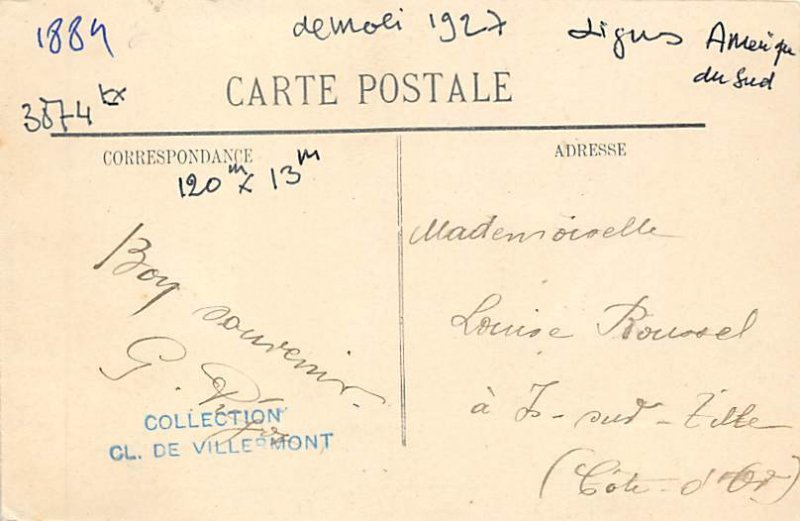 1889
demoli 1927
Lignes Amérique
du Sud
3874 tx
CARTE POSTALE
CORRESPONDANCE
120 m x 13 m
Bon souvenir.
G.
COLLECTION
CL. DE VILLERMONT
ADRESSE
Mademoiselle
Louise Roussel
à Is-sur-Tille
(Côte-d'Or)